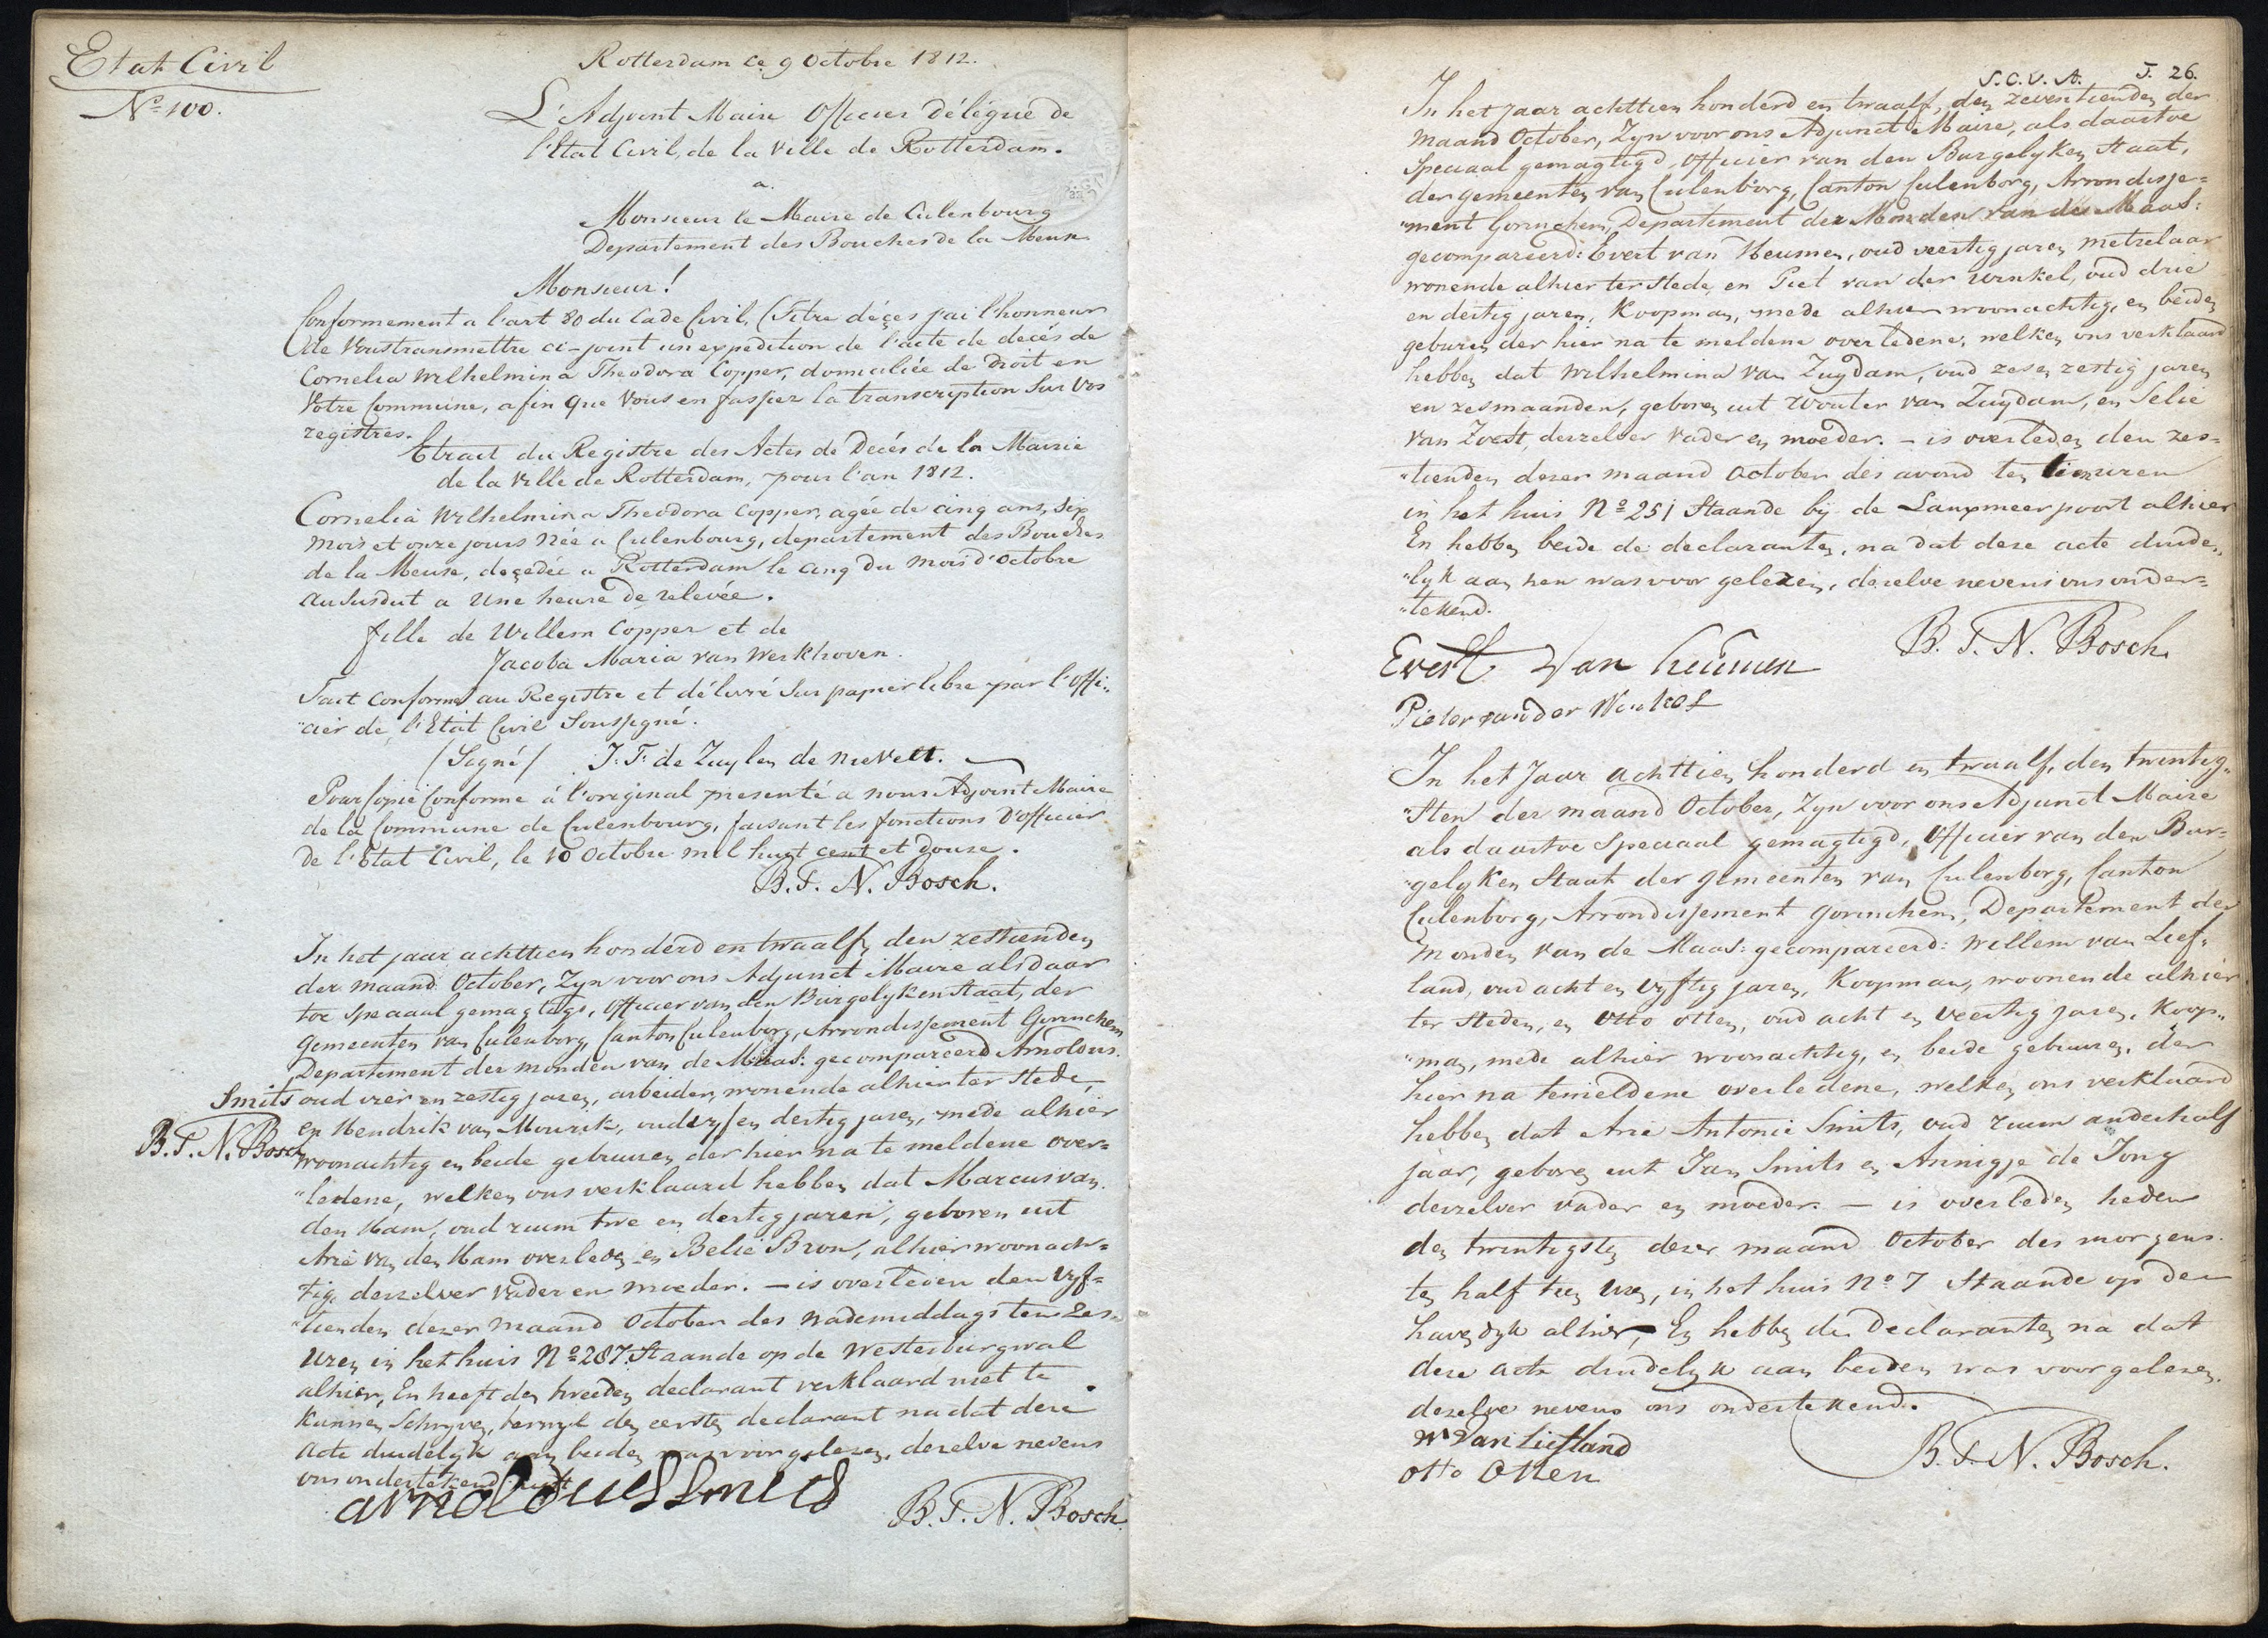 Etat Civil
Nº 100.
Rotterdam ce 9 Octobre 1812.
L'Adjoint Maire Officier Délégué de
l'Etat Civil, de la Ville de Rotterdam.
a.
Monsieur le Maire de Culenbourg
Departement des Bouches de la Meuse
Monsieur!
Conformement a l'art 80 du Code Civil, (Titre déçes j'ai l'honneur
de Vous transmettre ci-joint un expedition de l'acte de decés de
Cornelia Wilhelmina Theodora Copper, domiciliée de droit en
Votre Commune, afin que Vous en fassiez la transcription Sur Vos
registres.
Etract du Registre des Actes de Decés de la Mairie
de la Ville de Rotterdam, pour l'an 1812.
Cornelia Wilhelmina Theodora Copper, agée de cinq ans, six
mois et onze jours Née a Culenbourg, departement des Bouches
de la Meuse, deçedée a Rotterdam le cinq du mois d'Octobre
au susdit a Une heure de relevée.
fille de Willem Copper et de
Jacoba Maria van Werkhoven.
Fait Conforme au Registre et délivré Sur papier libre par l'Offi„
"cier de l'Etat Civil Soussigné.
(Signé) J: F: de Zuylen de Nievelt.
Pour Copie Conforme á l'original presenté a nous Adjoint Maire
de la Commune de Culenbourg, faisant les fonctions D'officier
De l'Etat Civil, le 10 Octobre mil huit cent et douze.
B. F. N. Bosch.
In het jaar achttien honderd en twaalf, den zestienden
der maand October, Zyn voor ons Adjunct Maire als daar
toe Speciaal gemagtigd, Officier van den Burgelyken Staat, der
Gemeenten van Culenborg, Canton Culenborg, Arrondissement Gorinchem
Departement der monden van de Maas: gecompareerd Arnoldus
Smits oud vier en zestig jaren, arbeider, wonende alhier ter Stede,
en Hendrik van Mourik, oud vyf en dertig jaren, mede alhier
B. F. N. Bosch
woonachtig en beide gebuuren der hier na te meldene over=
"ledene, welken ons verklaard hebben dat Marcus van
den Ham, oud ruim twe en dertig jaren, geboren uit
Arie van den Ham overleden en Belie Bron, alhier woonach=
tig, derzelver vader en moeder. — is overleden den vyf=
"tienden dezer maand October des nademiddags ten zes
uren in het huis Nº 287. Staande op de Westerburgwal
alhier, En heeft den tweeden declarant verklaard niet te
kunnen Schryven, terwyl den eersten declarant na dat deze
acte duidelyk aan beiden was voorgelezen, dezelve nevens
ons ondertekend heeft
arnoldues Smits
B. F. N. Bosch.
S. C. V. A. F. 26.
In het Jaar achttien honderd en twaalf, den zeventienden der
maand October, Zyn voor ons Adjunct Maire, als daartoe
Speciaal gemagtigd, Officier van den Burgelyken Staat,
der gemeenten van Culenborg, Canton Culenborg, Arrondisse=
"ment Gorinchem, Departement der Monden van de Maas:
gecompareerd: Evert van Heumen, oud veertig jaren, metzelaar
wonende alhier ter Stede, en Piet van der Winkel, oud drie
en dertig jaren, Koopman, mede alhier woonachtig, en beiden
geburen der hier na te meldene overledene, welken ons verklaard
hebben dat Wilhelmina van Zuydam, oud zes en zestig jaren
en zes maanden, geboren uit Wouter van Zuydam, en Selie
van Zoest, derzelver vader en moeder. — is overleden den zes=
"tienden dezer maand October des avond ten tien uren
in het huis Nº 251 Staande bij de Lanxmeer poort alhier
En hebben beide de declaranten, na dat deze acte duide„
"lyk aan hen was voor gelezen, dezelve nevens ons onder=
"tekend.
Evert Van heumen
B. F. N. Bosch.
Pieter van der Winkel
In het Jaar achttien honderd en twaalf, den twintig„
"sten der maand October, Zyn voor ons Adjunct Maire
als daartoe Speciaal gemagtigd, Officier van den Bur=
"gelyken Staat der gemeenten van Culenborg, Canton
Culenborg, Arrondissement Gorinchem, Departement der
monden van de Maas: gecompareerd: Willem van Lief„
land, oud acht en vyftig jaren, Koopman, woonende alhier
ter Steden, en Otto Otten, oud acht en veertig jaren, Koop„
"man, mede alhier woonachtig, en beide gebuuren, der
hier na temeldene overledene, welken ons verklaard
hebben dat Arie Antonie Smits, oud ruim anderhalf
jaar, geboren uit Jan Smits en Annigje de Jong
derzelver vader en moeder. — is overleden heden
den twintigsten dezer maand October des morgens
ten half tien uren, in het huis Nº 7 Staande op den
havendyk alhier, En hebben de Declaranten na dat
deze acte duidelyk aan beiden was voorgelezen,
dezelve nevens ons ondertekend.
W Van Liefland
otto Otten
B. F. N. Bosch.